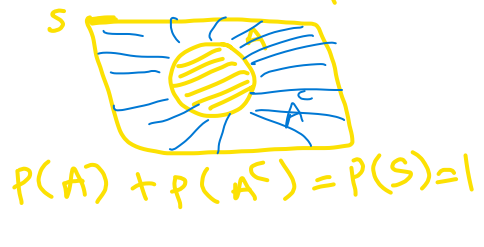 S
A
A^C
P(A) + P(A^C) = P(S) = 1